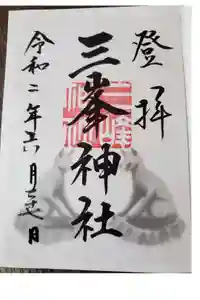 登拝
三峯神社
令和二年六月 日